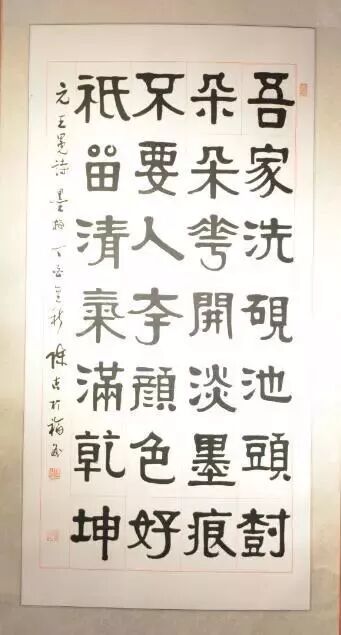 吾家洗硯池頭尌
朵朵花開淡墨痕
不要人夸顏色好
祇留清氣滿乾坤
元王冕詩墨梅丁亥金秋